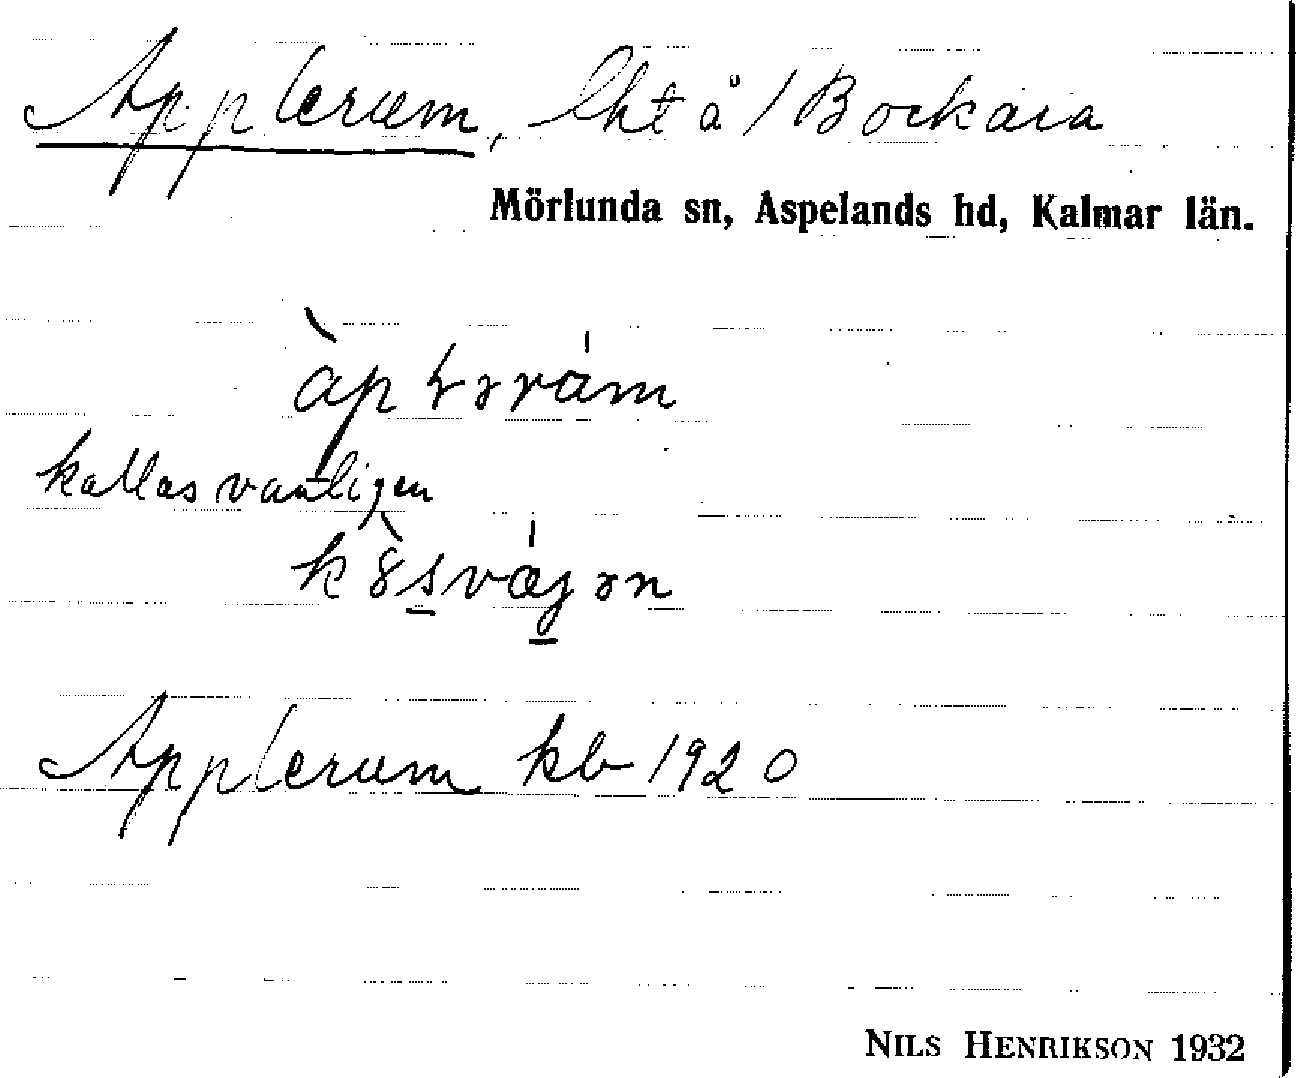 Applerum, lht å 1 Bockara
Mörlunda sn, Aspelands hd, Kalmar län.
kallas vanligen
Applerum kb 1920
NILS HENRIKSON 1932